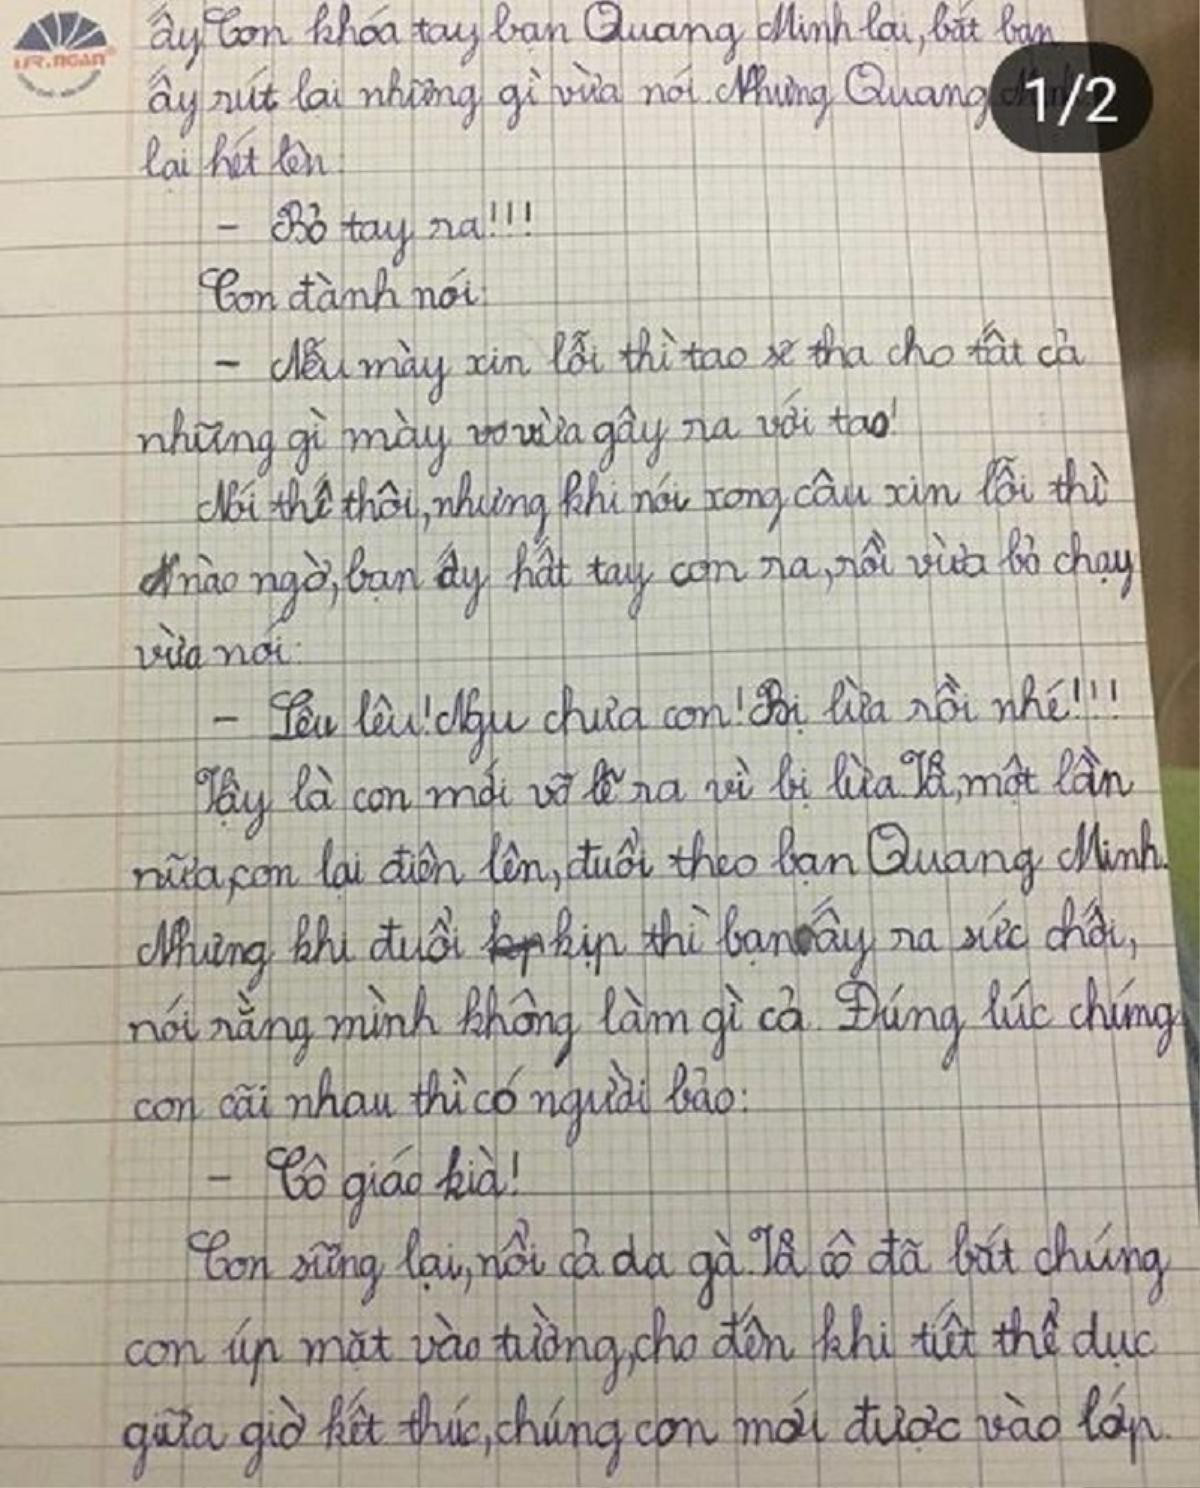 ấy. Con khóa tay bạn Quang Minh lại, bắt bạn
ấy rút lại những gì vừa nói. Nhưng Quang
1/2
lại hét lên:
- Bỏ tay ra!!!
Con đành nói:
- Nếu mày xin lỗi thì tao sẽ tha cho tất cả
những gì mày vừa gây ra với tao!
Nói thế thôi, nhưng khi nói xong câu xin lỗi thì
nào ngờ, bạn ấy hất tay con ra, rồi vừa bỏ chạy
vừa nói:
- Lêu lêu! Ngu chưa con! Bị lừa rồi nhé!!!
Vậy là con mới vỡ lẽ ra vì bị lừa. Và, một lần
nữa, con lại điên lên, đuổi theo bạn Quang Minh.
Nhưng khi đuổi kịp thì bạn ấy ra sức chối,
nói rằng mình không làm gì cả. Đúng lúc chúng
con cãi nhau thì có người bảo:
- Cô giáo kìa!
Con sững lại, nổi cả da gà. Và cô đã bắt chúng
con úp mặt vào tường, cho đến khi tiết thể dục
giữa giờ kết thúc, chúng con mới được vào lớp.